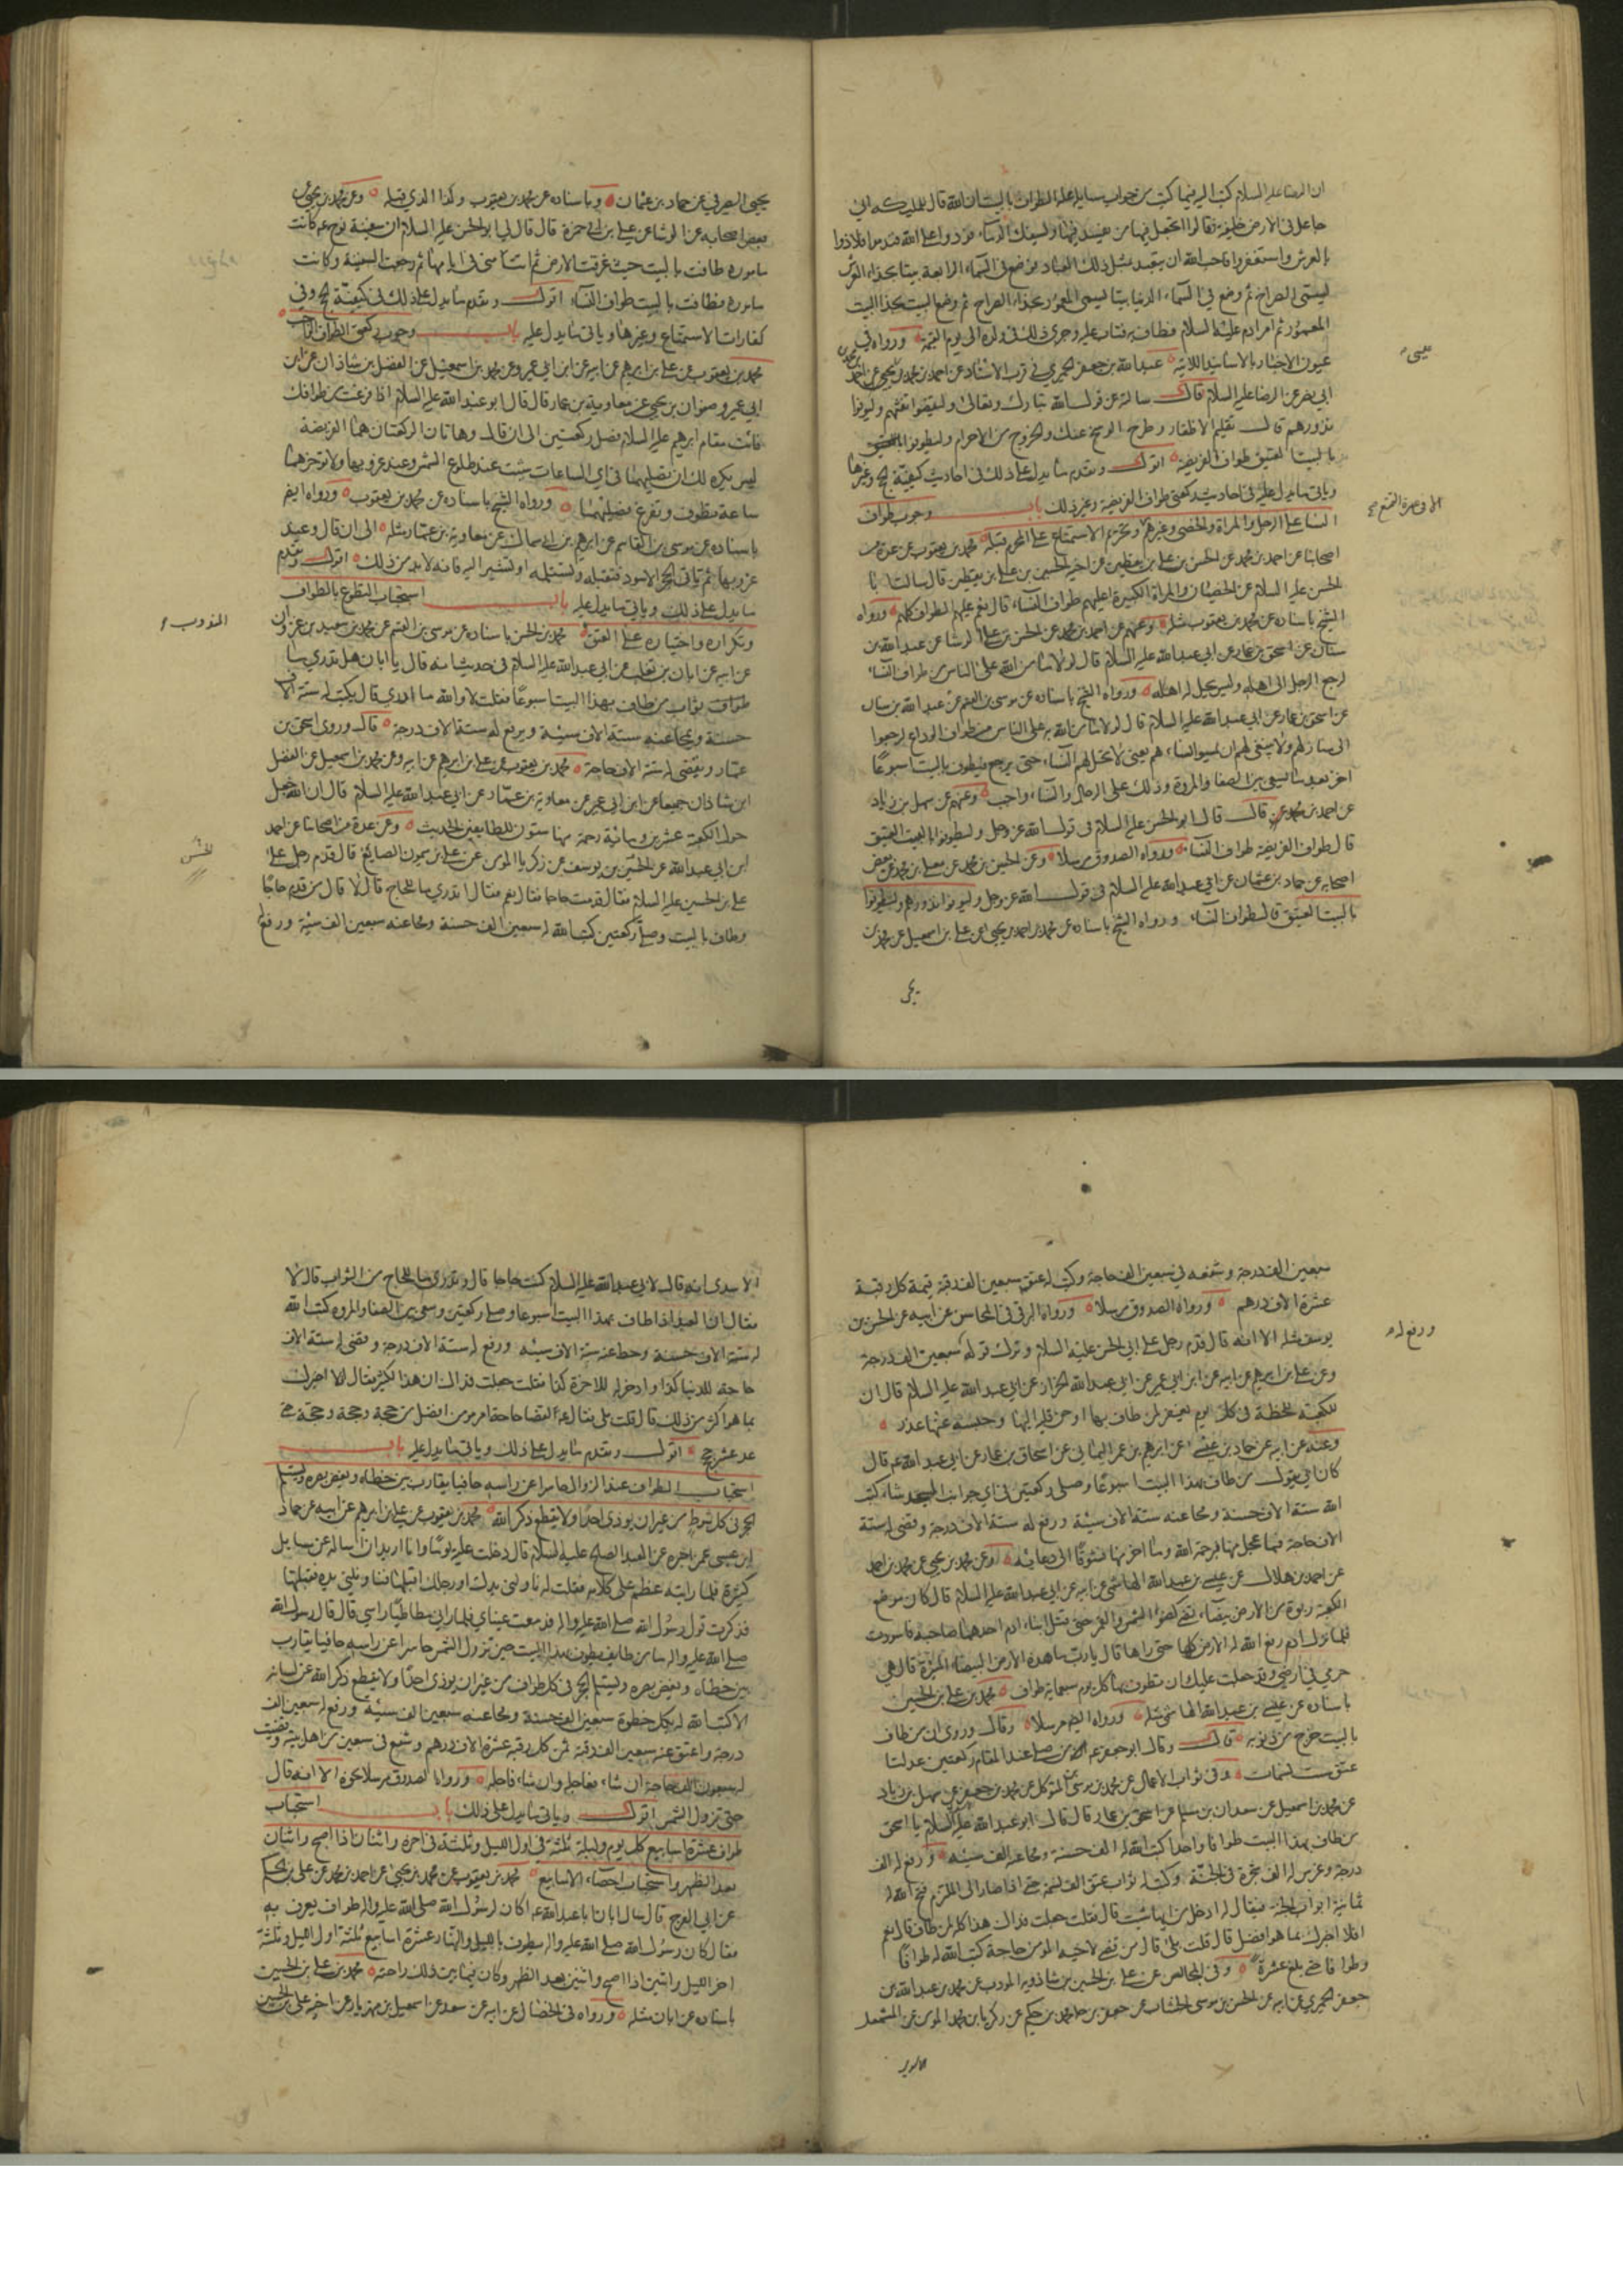 ان الرضا عليه السلام كتب اليه فيما كتب من جواب مسايله علة الطواف بالبيت ان الله قال للملئكه اني
جاعل في الارض خليفة فقالوا اتجعل فيها من يفسد فيها ويسفك الدماء فردوا على الله فندموا فلاذوا
بالعرش واستغفروا فاحب الله ان يتعبد بمثل ذلك العباد فوضع في السماء الرابعة بيتا بحذاء العرش
ليسمى الضراح ثم وضع في السماء الدنيا بيتا ليسمى المعمور بحذاء الضراح ثم وضع البيت بحذا البيت
المعمور ثم امر ادم عليه السلام فطاف به فتاب عليه وجرى ذلك في ولده الى يوم القيمة ورواه في
عيون الاخبار بالاسانيد الاتية عبد الله بن جعفر الحميري في قرب الاسناد عن احمد بن محمد
ابي نصر عن الرضا عليه السلام قال سالته عن قول الله تبارك وتعالى وليقضوا تفثهم وليوفوا
نذورهم قال تقليم الاظفار وطرح الوسخ عنك والخروج من الاحرام وليطوفوا
بالبيت العتيق طواف الفريضة اقول وتقدم ما يدل على ذلك في احاديث كيفية الحج وغيرها
وياتي ما يدل عليه في احاديث ركعتي طواف الفريضة وغير ذلك باب وجوب طواف
النسا على الرجل والمراة والخصي وغيرهم وتحريم الاستمتاع على المحرم قبله محمد بن يعقوب عن عدة من
اصحابنا عن احمد بن محمد عن الحسن بن علي بن يقطين عن اخيه الحسين بن علي بن يقطين قال سالت ابا
الحسن عليه السلام عن الخصيان والمراة الكبيرة اعليهم طواف النساء قال نعم عليهم الطواف كلهم ورواه
الشيخ باسناده عن محمد بن يعقوب مثله وعنهم عن احمد بن محمد عن الحسن بن علي الوشا عن عبد الله بن
سنان عن اسحق بن عمار عن ابي عبد الله عليه السلام قال لولا ما من الله على الناس من طواف النساء
لرجع الرجل الى اهله وليس يحل له اهله ورواه الشيخ باسناده عن موسى بن القسم عن عبد الله بن سنان
عن اسحق بن عمار عن ابي عبد الله عليه السلام قال لولا ما من الله به على الناس من طواف الوداع لرجعوا
الى منازلهم ولا ينبغي لهم ان يمسوا النساء، هم يعني لا تحل لهم النساء حتى يرجع فيطوف بالبيت اسبوعا
اخر بعد ما يسعى بين الصفا والمروة وذلك على الرجال والنساء واجب وعنهم عن سهل بن زياد
عن احمد بن محمد قال قال ابو الحسن عليه السلام في قول الله عز وجل وليطوفوا بالبيت العتيق
قال طواف الفريضة طواف النساء ورواه الصدوق مرسلا وعن الحسين بن محمد عن معلى بن محمد عن بعض
اصحابه عن حماد بن عثمان عن ابي عبد الله عليه السلام في قول الله عز وجل وليوفوا نذورهم وليطوفوا
بالبيت العتيق قال طواف النساء ورواه الشيخ باسناده عن محمد بن احمد بن يحيى عن علي بن اسمعيل عن محمد بن
يحيى
يحيى الصيرفي عن حماد بن عثمان وباسناده عن محمد بن يعقوب وكذا الذي قبله وعن محمد بن يحيى عن
بعض اصحابه عن الوشا عن علي بن ابي حمزة قال قال لي ابو الحسن عليه السلام ان سفينة نوح عم كانت
مامورة طافت بالبيت حيث غرقت الارض ثم اتت منى في ايامها ثم رجعت السفينة وكانت
مامورة فطافت بالبيت طواف النساء اقول وتقدم ما يدل على ذلك في كيفية الحج وفي
كفارات الاستمتاع وغيرها وياتي ما يدل عليه باب وجوب ركعتي الطواف الواجب
محمد بن يعقوب عن علي بن ابرهيم عن ابيه عن ابن ابي عمير وعن محمد بن اسمعيل عن الفضل بن شاذان عن ابن
ابي عمير وصفوان بن يحيى عن معاوية بن عمار قال قال ابو عبد الله عليه السلام اذا فرغت من طوافك
فائت مقام ابرهيم عليه السلام فصل ركعتين الى ان قال وهاتان الركعتان هما الفريضة
ليس يكره لك ان تصليهما في اي الساعات شئت عند طلوع الشمس وعند غروبها ولا توخرهما
ساعة تطوف وتفرغ فصلهما ورواه الشيخ باسناده عن محمد بن يعقوب ورواه ايضا
باسناده عن موسى بن القاسم عن ابرهيم بن ابي سمال عن معاوية بن عمار مثله الى ان قال وعند
غروبها ثم تاتي الحجر الاسود فتقبله وتستلمه او تشير اليه فانه لابد من ذلك اقول وتقدم
ما يدل على ذلك وياتي ما يدل عليه باب استحباب التطوع بالطواف
وتكراره واختياره على العتق محمد بن الحسن باسناده عن موسى بن القسم عن محمد بن سعيد بن غزوان
عن ابيه عن ابان بن تغلب عن ابي عبد الله عليه السلام في حديث انه قال يا ابان هل تدري ما
ثواب من طاف بهذا البيت اسبوعا فقلت لا والله ما ادري قال يكتب له ستة الاف
حسنة ويمحا عنه ستة الاف سيئة ويرفع له ستة الاف درجة قال وروى اسحق بن
عمار ويقضى له ستة الاف حاجة محمد بن يعقوب عن علي بن ابرهيم عن ابيه وعن محمد بن اسمعيل عن الفضل
ابن شاذان جميعا عن ابن ابي عمير عن معاوية بن عمار عن ابي عبد الله عليه السلام قال ان الله جعل
حول الكعبة عشرين ومائة رحمة منها ستون للطايفين الحديث وعن عدة من اصحابنا عن احمد
ابن ابي عبد الله عن الحسن بن يوسف عن زكريا المومن عن علي بن ميمون الصايغ قال قدم رجل على
علي بن الحسين عليه السلام فقال قدمت حاجا فقال نعم فقال اتدري ما للحاج قال لا قال من قدم حاجا
وطاف بالبيت وصلى ركعتين كتب الله له سبعين الف حسنة ومحا عنه سبعين الف سيئة ورفع
سبعين الف درجة وشفعه في سبعين الف حاجة وكتب له عتق سبعين الف رقبة قيمة كل رقبة
عشرة الاف درهم ورواه الصدوق مرسلا ورواه البرقي في المحاسن عن ابيه عن الحسن بن
يوسف مثله الا انه قال قدم رجل على ابي الحسن عليه السلام وترك قوله سبعين الف درجة
ورفع له
وعن علي بن ابرهيم عن ابيه عن ابن ابي عمير عن ابي عبد الله الخزاز عن ابي عبد الله عليه السلام قال ان
للكعبة للحظة في كل يوم يغفر لمن طاف بها او حن قلبه اليها وحبسه عنها عذر
وعنه عن ابيه عن حماد بن عيسى عن ابرهيم بن عمر اليماني عن اسحاق بن عمار عن ابي عبد الله عم قال
كان ابي يقول من طاف بهذا البيت اسبوعا وصلى ركعتين في اي جوانب المسجد شاء كتب
الله ستة الاف حسنة ومحا عنه ستة الاف سيئة ورفع له ستة الاف درجة وقضى له ستة
الاف حاجة فما عجل منها فبرحمة الله وما اخر منها فشوقا الى دعائه وعن محمد بن يحيى عن محمد بن احمد
عن احمد بن هلال عن عيسى بن عبد الله الهاشمي عن ابيه عن ابي عبد الله عليه السلام قال كان موضع
الكعبة ربوة من الارض بيضاء تضيء كضوء الشمس والقمر حتى قتل ابنا ادم احدهما صاحبه فاسودت
فلما نزل ادم رفع الله له الارض كلها حتى راها قال يا رب ما هذه الارض البيضاء المنيرة قال هي
حرمي في ارضي وقد جعلت عليك ان تطوف بها كل يوم سبعماية طواف محمد بن علي بن الحسين
باسناده عن عيسى بن عبد الله الهاشمي مثله ورواه ايضا مرسلا وقال وروي ان من طاف
بالبيت خرج من ذنوبه قال وقال ابو جعفر عم من صلى عند المقام ركعتين عدلتا
عتق ست نسمات وفي ثواب الاعمال عن محمد بن موسى بن المتوكل عن محمد بن جعفر عن سهل بن زياد
عن محمد بن اسمعيل عن سعدان بن مسلم عن اسحق بن عمار قال قال ابو عبد الله عليه السلام يا اسحق
من طاف بهذا البيت طوافا واحدا كتب الله له الف حسنة ومحا عنه الف سيئة ورفع له الف
درجة وغرس له الف شجرة في الجنة وكتب له ثواب عتق الف نسمة حتى اذا صار الى الملتزم فتح الله له
ثمانية ابواب الجنة فيقال له ادخل من ايها شئت قال فقلت جعلت فداك هذا كله لمن طاف قال نعم
افلا اخبرك بما هو افضل قال قلت بلى قال من قضى لاخيه المومن حاجة كتب الله له طوافا
وطوافا حتى بلغ عشرة وفي المجالس عن علي بن الحسين بن شاذويه المودب عن محمد بن عبد الله بن
جعفر الحميري عن ابيه عن الحسن بن موسى الخشاب عن جعفر بن محمد بن حكيم عن زكريا بن محمد المومن عن المشمعل
الاسدي
الاسدي انه قال لابي عبد الله عليه السلام كنت حاجا قال وتدري ما للحاج من الثواب قال لا
فقال ان العبد اذا طاف بهذا البيت اسبوعا وصلى ركعتين وسعى بين الصفا والمروه كتب الله
له ستة الاف حسنة وحط عنه ستة الاف سيئه ورفع له ستة الاف درجة وقضى له ستة الاف
حاجة للدنيا كذا وادخر له للاخرة كذا فقلت جعلت فداك ان هذا لكثير فقال الا اخبرك
بما هو اكثر من ذلك قال قلت بلى فقال عم لقضا حاجة امرء مومن افضل من حجة وحجة وحجة حتى
عد عشر حجج اقول وتقدم ما يدل على ذلك وياتي ما يدل عليه باب
استحباب الطواف عند الزوال حاسرا عن راسه حافيا يقارب بين خطاه ويغض بصره ويستلم
الحجر في كل شوط من غير ان يوذي احدا ولا يقطع ذكر الله محمد بن يعقوب عن علي بن ابرهيم عن ابيه عن حماد
ابن عيسى عمن اخبره عن العبد الصالح عليه السلام قال دخلت عليه يوما وانا اريد ان اساله عن مسايل
كثيرة فلما رايته عظم علي كلامه فقلت له ناولني يدك او رجلك اقبلها فناولني يده فقبلتها
فذكرت قول رسول الله صلى الله عليه واله فدمعت عيناي فلما راني مطاطيا راسي قال قال رسول الله
صلى الله عليه واله ما من طايف يطوف بهذا البيت حين تزول الشمس حاسرا عن راسه حافيا يقارب
بين خطاه ويغض بصره ويستلم الحجر في كل طواف من غير ان يوذي احدا ولا يقطع ذكر الله عن لسانه
الا كتب الله له بكل خطوة سبعين الف حسنة ومحا عنه سبعين الف سيئة ورفع له سبعين الف
درجة واعتق عنه سبعين الف رقبة ثمن كل رقبه عشرة الاف درهم وشفع في سبعين من اهل بيته وقضيت
له سبعون الف حاجة ان شاء فعاجله وان شاء فاجله ورواه الصدوق مرسلا نحوه الا انه قال
حتى تزول الشمس اقول وياتي ما يدل على ذلك باب استحباب
طواف عشرة اسابيع كل يوم وليلة ثلثة في اول الليل وثلثة في اخره واثنان اذا اصبح واثنان
بعد الظهر واستحباب احصاء الاسابيع محمد بن يعقوب عن محمد بن يحيى عن احمد بن محمد عن علي بن الحكم
عن ابي الفرج قال سال ابان ابا عبد الله عم اكان لرسول الله صلى الله عليه واله طواف يعرف به
فقال كان رسول الله صلى الله عليه واله يطوف بالليل والنهار عشرة اسابيع ثلثة اول الليل وثلثة
اخر الليل واثنين اذا اصبح واثنين بعد الظهر وكان فيما بين ذلك راحته محمد بن علي بن الحسين
باسناده عن ابان مثله ورواه في الخصال عن ابيه عن سعد عن اسمعيل بن مهزيار عن اخيه علي